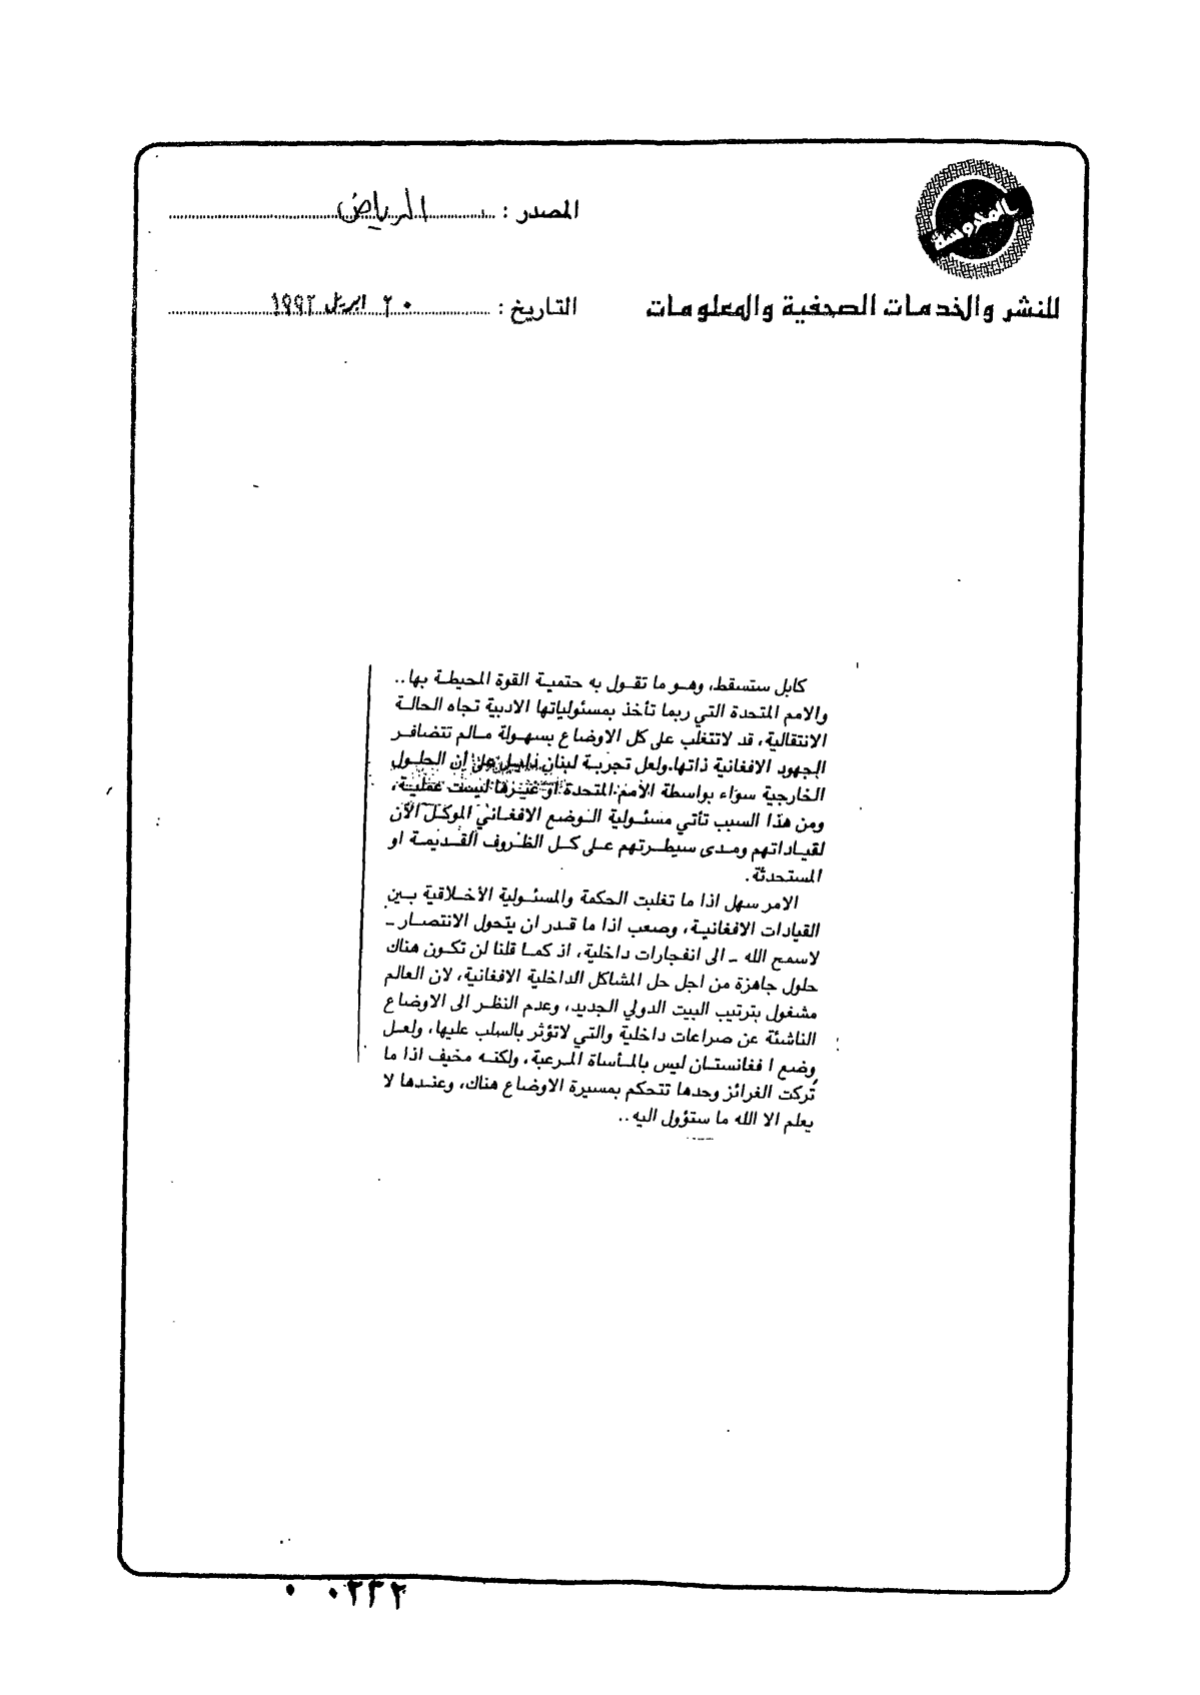 المحروسة
المصدر : الرياض
للنشر والخدمات الصحفية والمعلومات
التاريخ : ٢٠ ابريل ١٩٩٢
كابل ستسقط، وهو ما تقول به حتمية القوة المحيطة بها..
والامم المتحدة التي ربما تأخذ بمسئولياتها الادبية تجاه الحالة
الانتقالية، قد لاتتغلب على كل الاوضاع بسهولة مالم تتضافر
الجهود الافغانية ذاتها.ولعل تجربة لبنان دليل على إن الحلول
الخارجية سواء بواسطة الأمم المتحدة او غيرها ليست عملية،
ومن هذا السبب تأتي مسئولية الوضع الافغاني الموكل الآن
لقياداتهم ومدى سيطرتهم على كل الظروف القديمة او
المستحدثة.
الامر سهل اذا ما تغلبت الحكمة والمسئولية الأخلاقية بين
القيادات الافغانية، وصعب اذا ما قدر ان يتحول الانتصار ـ
لاسمح الله ـ الى انفجارات داخلية، اذ كما قلنا لن تكون هناك
حلول جاهزة من اجل حل المشاكل الداخلية الافغانية، لان العالم
مشغول بترتيب البيت الدولي الجديد، وعدم النظر الى الاوضاع
الناشئة عن صراعات داخلية والتي لاتؤثر بالسلب عليها، ولعل
وضع ا فغانستان ليس بالمأساة المرعبة، ولكنه مخيف اذا ما
تُركت الغرائز وحدها تتحكم بمسيرة الاوضاع هناك، وعندها لا
يعلم الا الله ما ستؤول اليه..